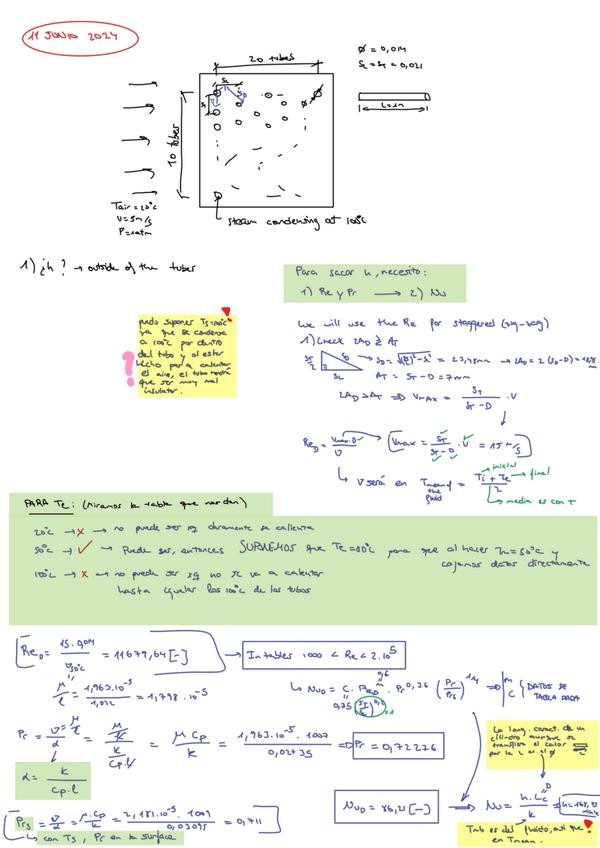 11 JUNIO 2024
20 tubes
10 tubes
ϕ = 0,014
SL = ST = 0,021
L=1m
Tair = 20°C
V = 5m/s
P = 1atm
steam condensing at 100°C
1) ¿h? → outside of the tubes
Para sacar h, necesito:
1) Re y Pr → 2) Nu
puedo suponer Ts=100°C
ya que se condensa
a 100°C por dentro
del tubo y al estar
hecho para calentar
el aire, el tubo
que ser muy mal
insulator.
We will use the Re for staggered (zig-zag)
1) Check 2AD ≥ AT
AT = ST - D = 7mm
2AD > AT ⇒ Vmax = ST / (ST - D) · V
ReD = Vmax·D / ν → (Vmax = ST / (ST - D) · V = 15 m/s)
→ ν será en Tmean of the fluid = (Ti + Te) / 2
inicial
final
→ media es con T
PARA Te: (Miramos la tabla que nos dan)
20°C → x → no puede ser xq claramente se calienta
50°C → ✓ → Puede ser, entonces SUPONEMOS que Te=80°C para que al hacer Tm=50°C y
cojamos datos directamente
100°C → x → no puede ser xq no se va a calentar
hasta igualar los 100°C de los tubos
ReD = 15·0,014 / ν50°C = 11679,64 [-] → In tables 1000 < Re < 2·10⁵
μ/ρ = 1,963·10⁻⁵ / 1,092 = 1,798·10⁻⁵
NuD = C · ReD^m · Pr^0,36 (Pr/Prs)^1/4 ⇒ m C (DATOS DE TABLA PARA
0,6
0,35 (ST/SL)^0,2 = 1
Pr = ν/α = (μ/ρ) / (k/(cp·ρ)) = μ Cp / k = 1,963·10⁻⁵ · 1007 / 0,02735 ⇒ Pr = 0,72276
α = k / (cp·ρ)
La long. caract. de un
cilindro, aunque se
transfiera el calor
por la L es el ϕ
NuD = 86,21 [-] ⇒ Nu = h·Lc / k
D
Prs = ν/α = μ·Cp / k = 2,181·10⁻⁵ · 1009 / 0,03095 = 0,711
→ con Ts, Pr en la surface
Tmb es del fluido, así que
en Tmean.